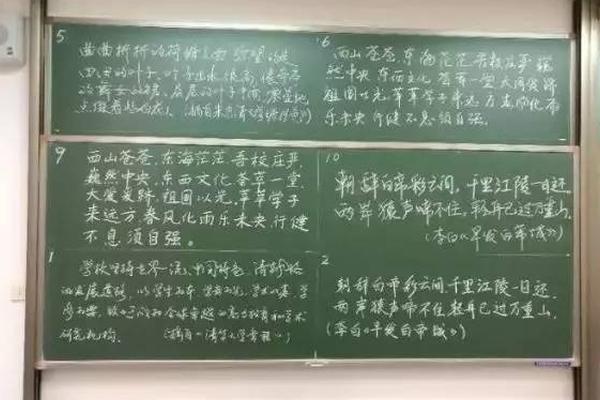 5
曲曲折折的荷塘上面,弥望的是
田田的叶子。叶子出水很高,像亭亭
的舞女的裙。层层的叶子中间,零星地
点缀着些白花。(摘自朱自清《荷塘月色》)
6
西山苍苍,东海茫茫,吾校庄严,巍
然中央。东西文化,荟萃一堂,大同爰跻,
祖国以光。莘莘学子来远方,春风化雨
乐未央,行健不息须自强。
9
西山苍苍,东海茫茫,吾校庄严,
巍然中央,东西文化,荟萃一堂,
大爱爰跻,祖国以光。莘莘学子
来远方,春风化雨乐未央,行健
不息须自强。
10
朝辞白帝彩云间,千里江陵一日还。
两岸猿声啼不住,轻舟已过万重山。
(李白《早发白帝城》)
1
学校坚持世界一流、中国特色、清华风格
的发展道路,以学生为本、学者为先、学术为要、学
为全球卓越的高等教育和学术
研究机构。(摘自《清华大学章程》)
2
朝辞白帝彩云间,千里江陵一日还。
两岸猿声啼不住,轻舟已过万重山。
(李白《早发白帝城》)